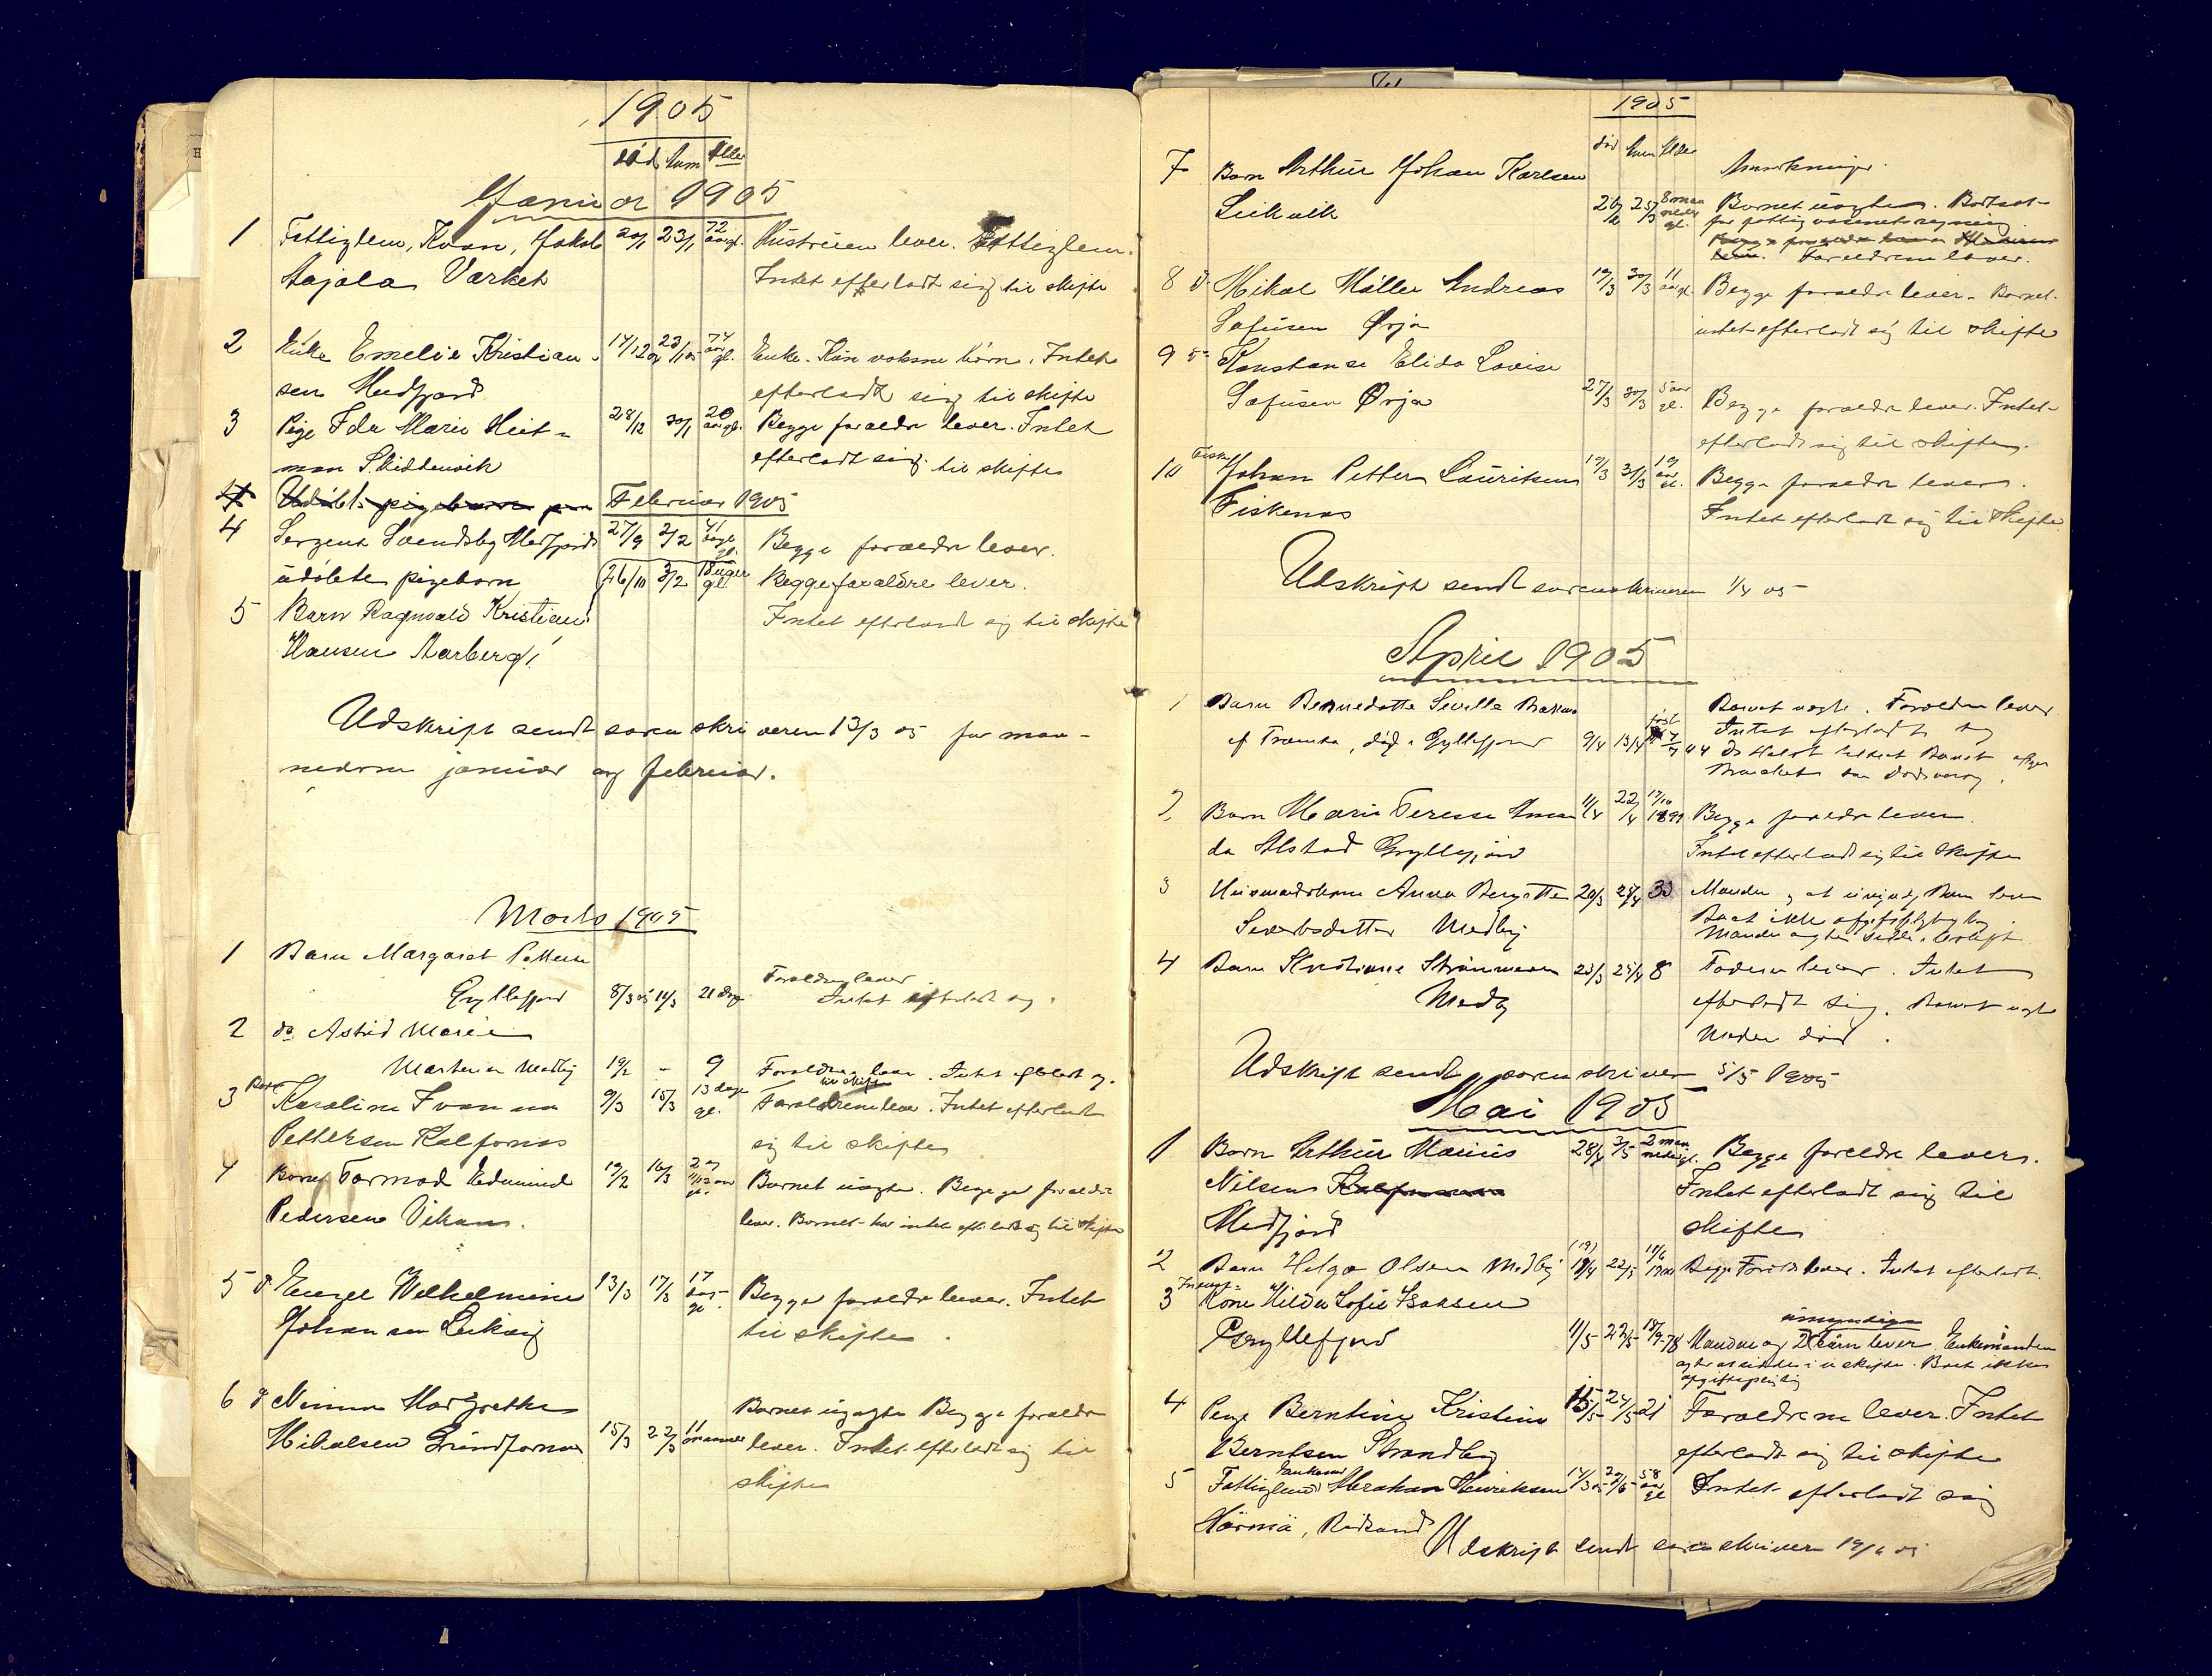 1905
død Anm Alder
Januar 1905
1 Fattiglem, Kvæn, Jakob 20/1 23/1 72 aar gl. Hustruen lever. Fattiglem.
Aajala Varket Intet efterladt sig til skifte
2 Enke Emelie Kristian- 14/12 04 23/1 05 74 aar gl. Enke. Kun voksne børn. Intet
sen Medfjord efterladt sig til skifte
3 Pige Ida Marie Heit- 28/12 30/1 20 aar gl. Begge forældre lever. Intet
man Skiddenvik efterladt sig til skifte
Februar 1905
4 Sergent Svendsby Medfjord 27/9 2/2 41 dage gl. Begge forældre lever.
udøbte pigebarn 26/10 3/2 Begge forældre lever.
5 Barn Ragnvald Kristian Intet efterladt sig til skifte
Hansen Aarberg
Udskrift sendt sorenskriveren 13/3 05 for maa-
nederne januar og februar.
Marts 1905
1 Barn Margaret Pettersen
Gryllefjord 8/3 05 14/3 21 dage Forældrene lever
Intet efterladt sig.
2 do Astrid Marie
Martensen Medby 19/2 - 9 Forældrene lever. Intet efterladt sig.
til skifte
3 Barn Karoline Ivanna 9/3 15/3 13 dage gl. Forældrene lever. Intet efterladt
Pettersen Kalfornes sig til skifte
4 Barnet Tormod Edmund 19/2 16/3 2 11/12 aar gl. Barnet uægte. Begge forældre
Pedersen Vikan. lever. Barnet har intet efterladt sig til skifte
5 do Engel Vilhelmine 13/3 17/3 17 dage gl. Begge forældre lever. Intet
Johansen Leikvig til skifte.
6 do Ninna Margrethe Barnet uægte Begge forældre
Mikalsen Grundfarnes 15/3 22/3 11 lever. Intet efterladt sig til
skifte
1905
død Anm Alder
7 Barn Arthur Johan Karlsen Anmerkninger.
Leikvik 26/2 25/3 8 maaneder gl. Barnet uægte. Bortsat
for fattigvæsenets regning
Forældrene lever.
8 do Mikal Møller Andreas 19/3 30/3 11 aar gl. Begge forældre lever. Barnet
Sofusen Ørja intet efterladt sig til skifte
9 do Konstanse Elida Lovise
Sofusen Ørja 27/3 30/3 5 aar gl. Begge forældre lever. Intet
efterladt sig til skifte.
10 Fisker Johan Petter Lauritsen 19/3 31/3 19 aar gl. Begge forældre lever.
Fiskenes Intet efterladt sig til skifte
Udskrift sendt sorenskriveren 1/4 05
April 1905
1 Barn Bernedotte Sivilla Barnet uægte. Forældre lever
af Tromsø, død i Gryllefjord 9/4 13/4 født 04 Intet efterladt sig
2 Barn Marie Terese Aman 11/4 22/4 17/10 1899 Begge forældre lever.
da Alstad Gryllefjord Intet efterladt sig til skifte
3 Husmandskone Anna Bergitte 20/3 25/4 33 Manden og et umyndig Barn lever
Sivertsdatter Medby Boet ikke afgiftspligtig
Manden agter sidde i uskifte
4 Barn Kristiane Strømmesen 23/3 25/4 8 Faderen lever. Intet
Medby efterladt sig. Barnet uægte
Moder død.
Udskrift sendt sorenskriver 5/5 1905
Mai 1905
1 Barn Arthur Marius 28/4 3/5 2 maaneder gl. Begge forældre lever.
Nilsen Intet efterladt sig til
Medfjord skifte
2 Barn Helga Olsen Medby (19) 19/4 22/5 Begge Forældre lever. Intet efterladt.
3 Kone Hilda Sofie Isaksen umyndige
Gryllefjord 11/5 22/5 18/9-78 Manden og børn lever Enkemanden
agter at sidde i uskifte. Boet ikke
afgiftspligtig
4 Pige Berntine Kristine 15/5 24/5 21 Forældrene lever. Intet
Berntsen Strandby efterladt sig til skifte
5 Fattiglem Enkemand Abraham Henriksen 14/3 05 58 aar gl Intet efterladt sig
Rødsand
Udskrift sendt sorenskriver 19/6 05